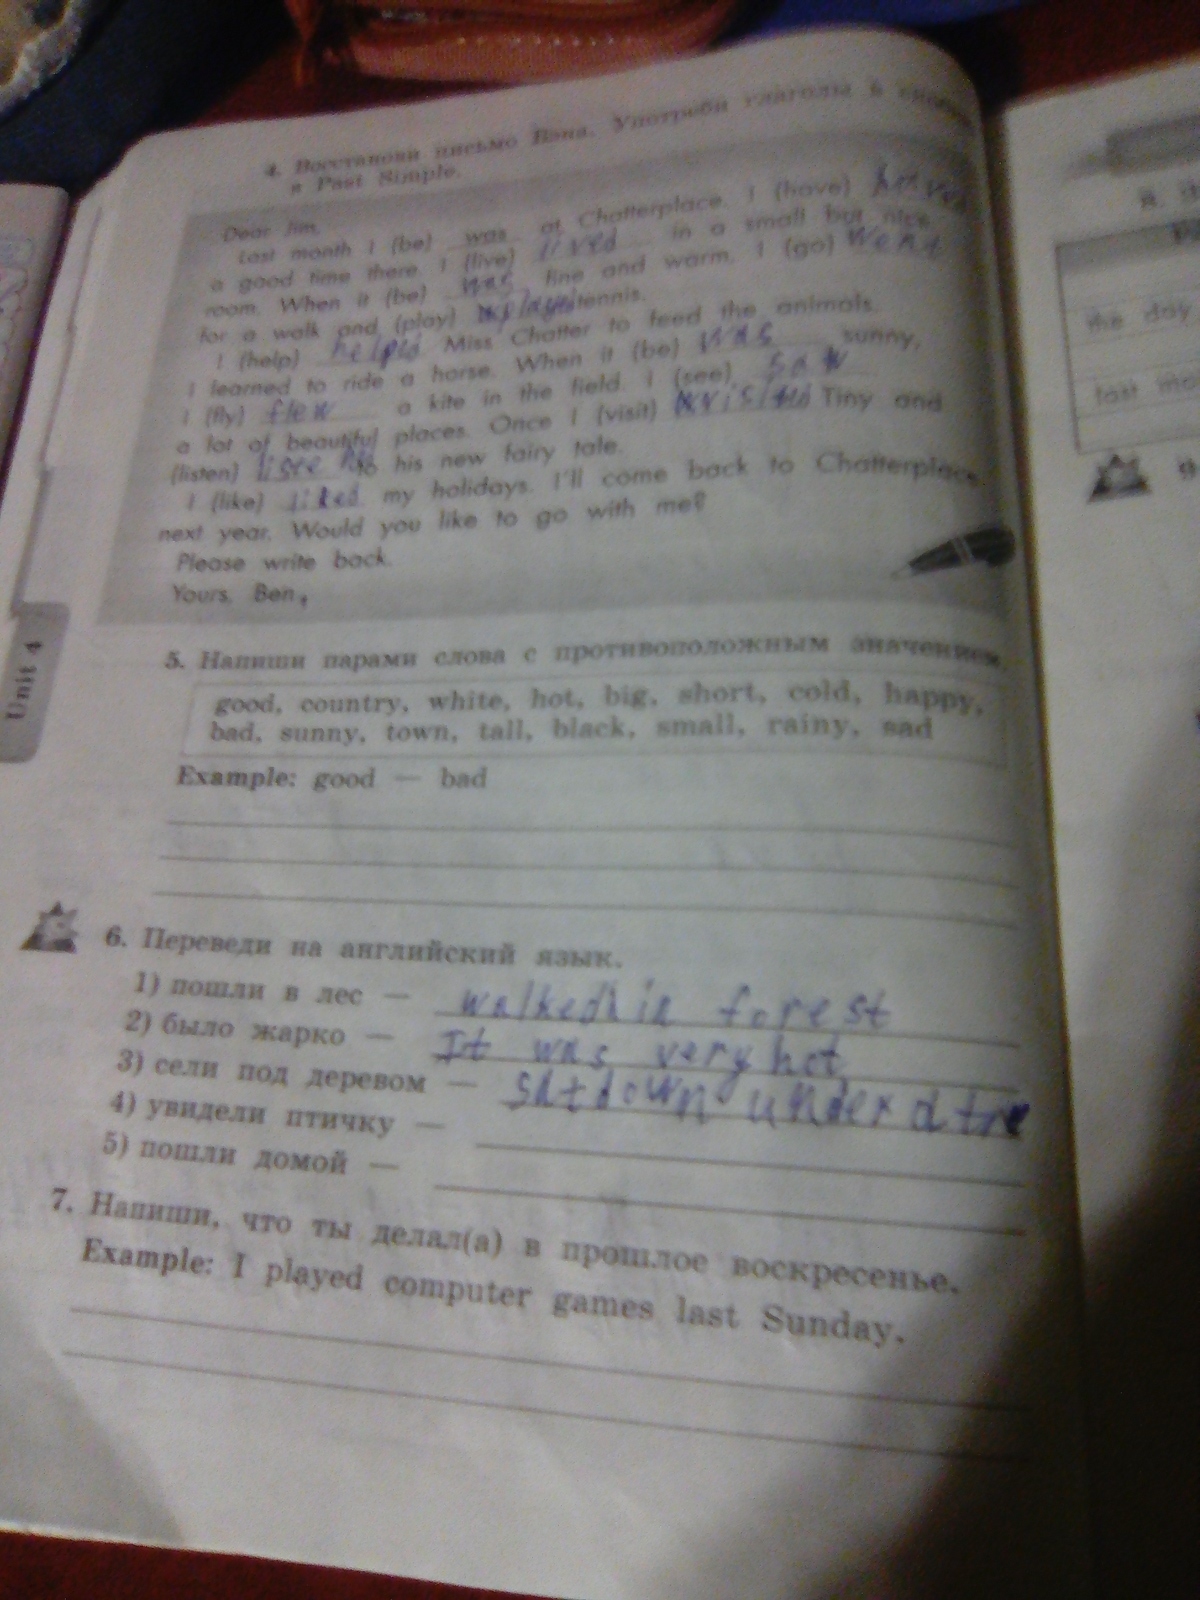 4. Восстанови письмо Бена. Употреби глаголы в
в Past Simple.
Dear Jim,
Last month I (be) was at Chatterplace. I (have)
a good time there. I (live) lived in a small but nice
room. When it (be) was fine and warm, I (go) went
for a walk and (play) tennis.
I (help) helped Miss Chatter to feed the animals.
I learned to ride a horse. When it (be) was sunny,
I (fly) flew a kite in the field. I (see) saw
a lot of beautiful places. Once I (visit) visited Tiny and
(listen) to his new fairy tale.
I (like) liked my holidays. I'll come back to Chatterplace
next year. Would you like to go with me?
Please write back.
Yours, Ben,
Unit 4
5. Напиши парами слова с противоположным значением.
good, country, white, hot, big, short, cold, happy,
bad, sunny, town, tall, black, small, rainy, sad
Example: good — bad
6. Переведи на английский язык.
1) пошли в лес — walked in forest
2) было жарко — It was very hot
3) сели под деревом — sat down under a tree
4) увидели птичку —
5) пошли домой —
7. Напиши, что ты делал(а) в прошлое воскресенье.
Example: I played computer games last Sunday.
the day
last mo